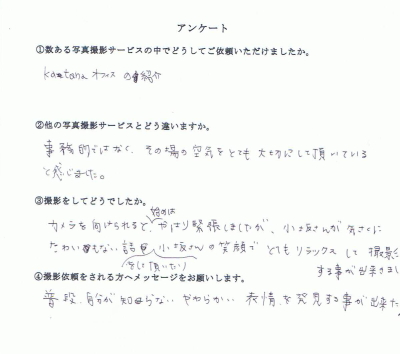 アンケート
①数ある写真撮影サービスの中でどうしてご依頼いただけましたか。
katana オフィス の紹介
②他の写真撮影サービスとどう違いますか。
事務的ではなく、その場の空気をとても大切にして頂いている
と感じました。
③撮影をしてどうでしたか。
始めは
カメラを向けられると、やはり緊張しましたが、小坂さんが気さくに
たわいもない話 小坂さんの笑顔で とてもリラックスして 撮影
をして頂いたり
する事が出来まし
④撮影依頼をされる方へメッセージをお願いします。
普段、自分が知らない やわらかい 表情を発見する事が出来た